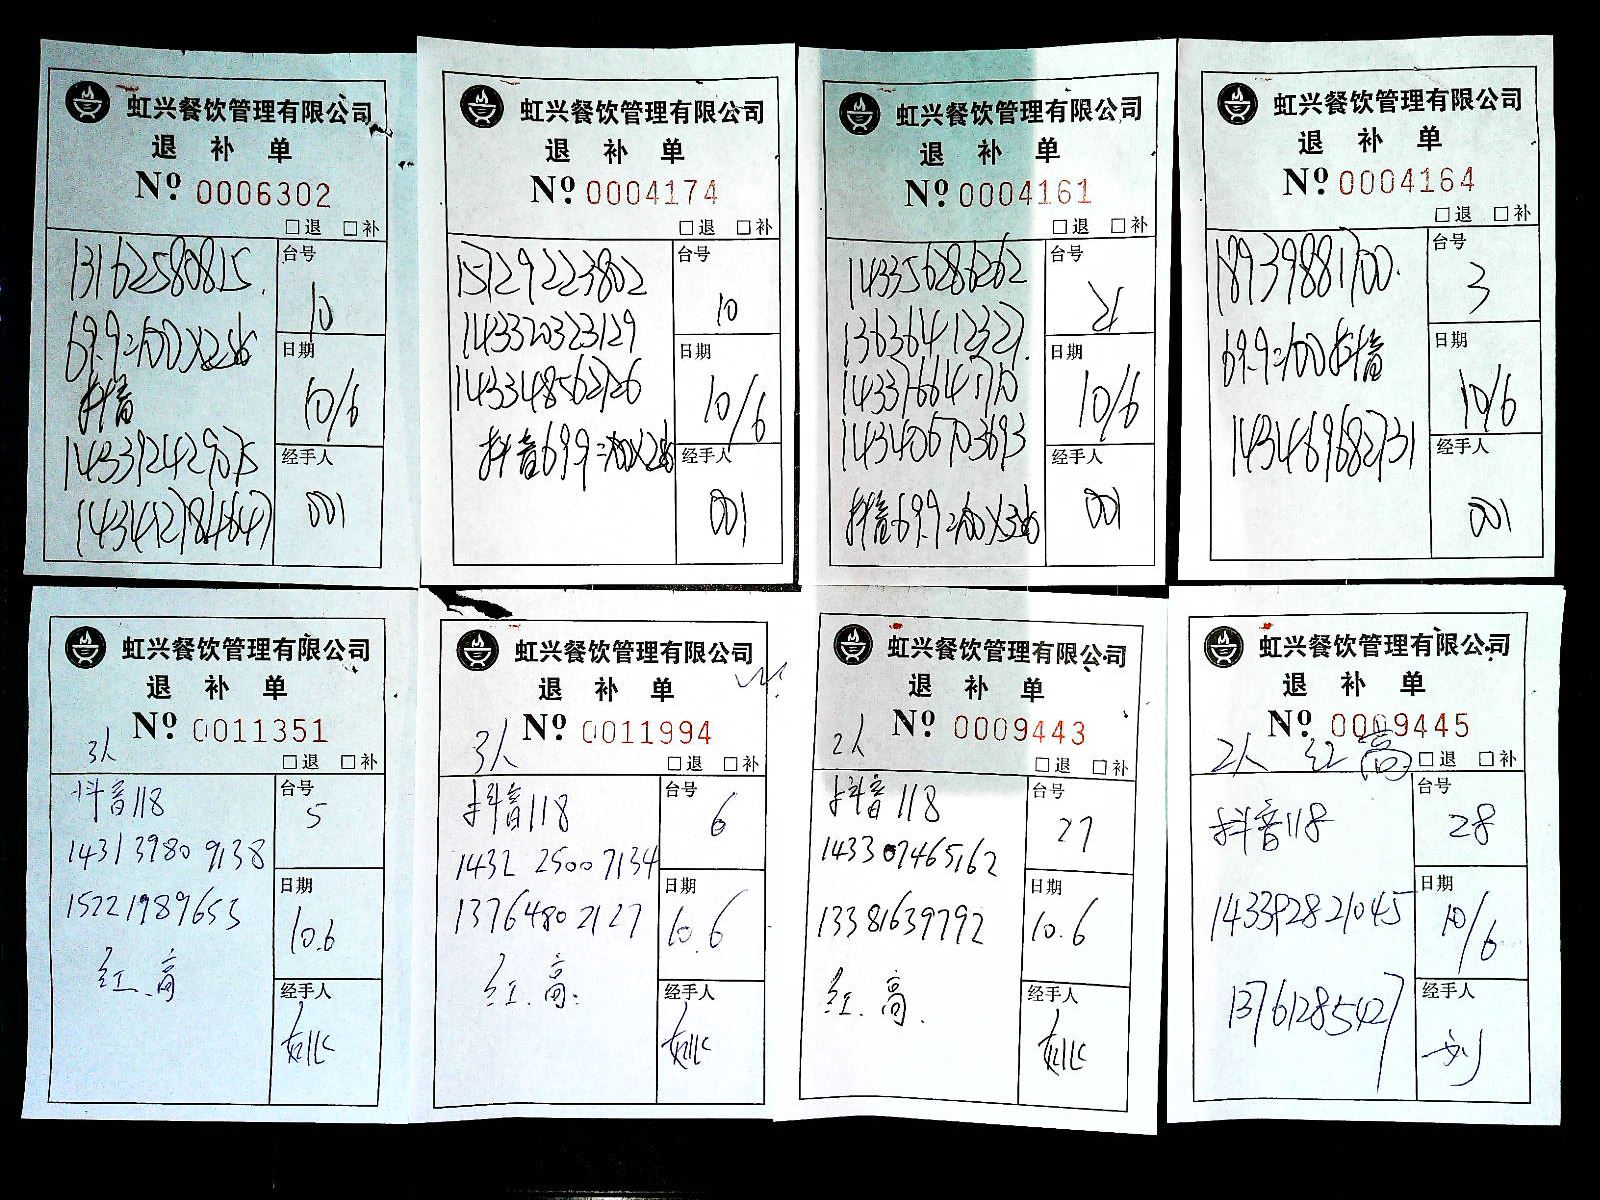 虹兴餐饮管理有限公司
退 补 单
Nº 0006302
□退 □补
13162580815.
69.9=100×2张
抖音
台号
10
日期
10/6
经手人
001
虹兴餐饮管理有限公司
退 补 单
Nº 0004174
□退 □补
15129223802
143320323129
143348562726
抖音69.9=100×2张
台号
10
日期
10/6
经手人
001
虹兴餐饮管理有限公司
退 补 单
Nº 0004161
□退 □补
143356286262
13636412327
143406703693
抖音69.9=100×3张
台号
日期
10/6
经手人
001
虹兴餐饮管理有限公司
退 补 单
Nº 0004164
□退 □补
18939881700.
69.9=100抖音
143469682731
台号
3
日期
10/6
经手人
001
虹兴餐饮管理有限公司
退 补 单
Nº 0011351
3人
□退 □补
抖音118
14313980 9138
15221989653
红.高
台号
5
日期
10.6
经手人
虹兴餐饮管理有限公司
退 补 单
Nº 0011994
3人
□退 □补
抖音118
1432 2500 7134
13764802127
红.高.
台号
6
日期
10.6
经手人
虹兴餐饮管理有限公司
退 补 单
Nº 0009443
2人
□退 □补
抖音118
143307465162
13381639792
红.高.
台号
27
日期
10.6
经手人
虹兴餐饮管理有限公司
退 补 单
Nº 0009445
2人 红高
□退 □补
抖音118
143392821045
13761285427
台号
28
日期
10/6
经手人
刘